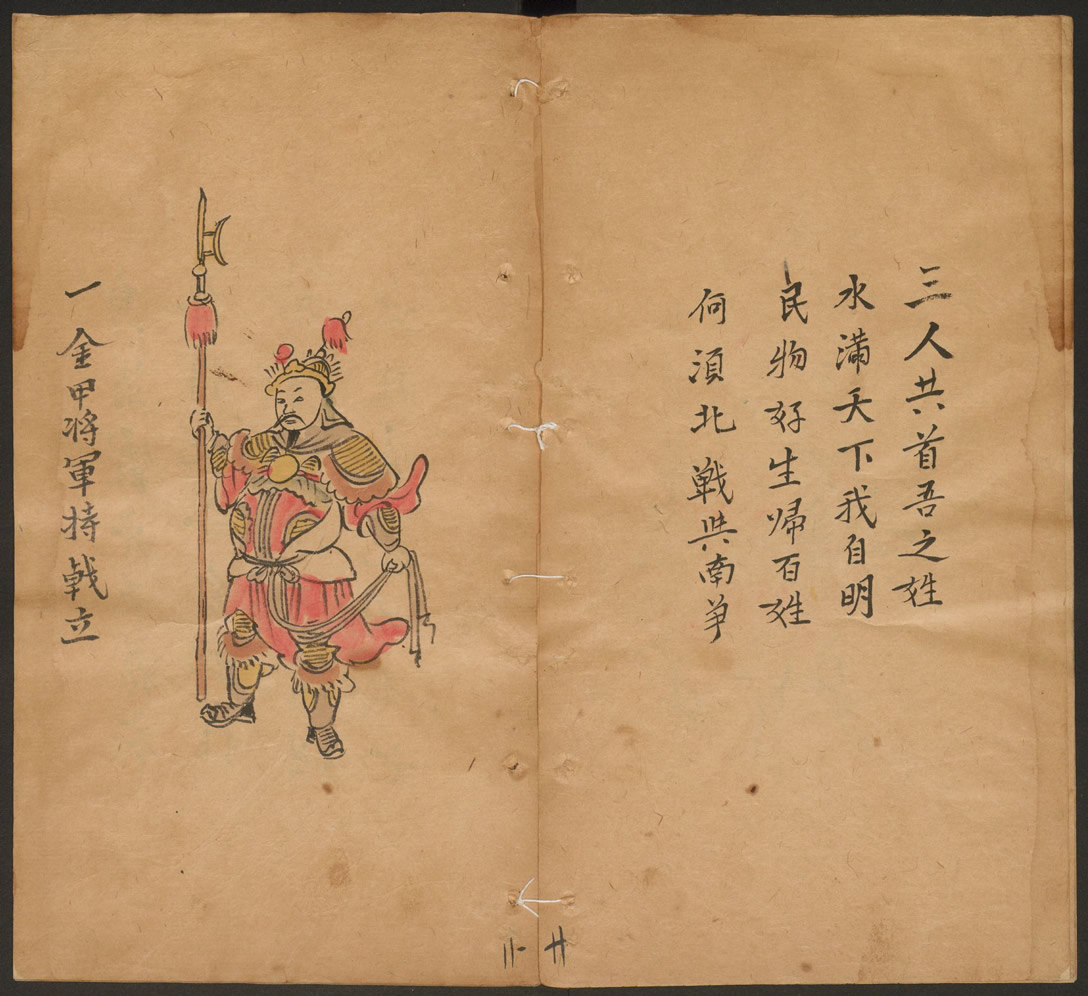 三人共首吾之姓
水滿天下我自明
民物好生歸百姓
何須北戰與南爭
一金甲将軍持戟立